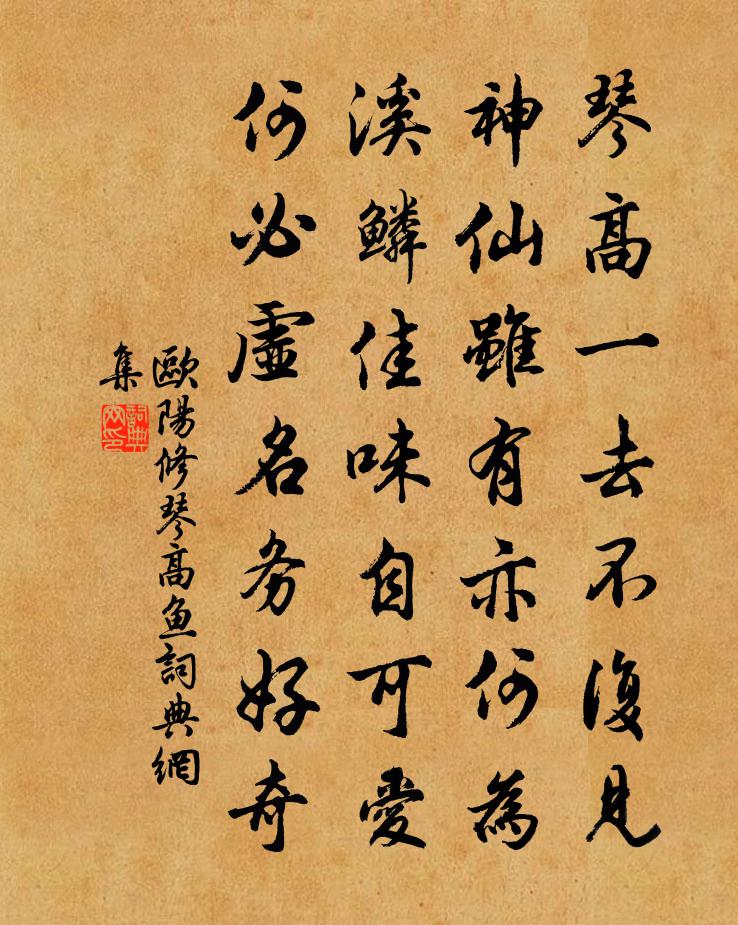 琴高一去不復見
神仙雖有亦何為
溪鱗佳味自可愛
何必虛名务好奇
歐陽修琴高魚詞典網
集
詞典
网印